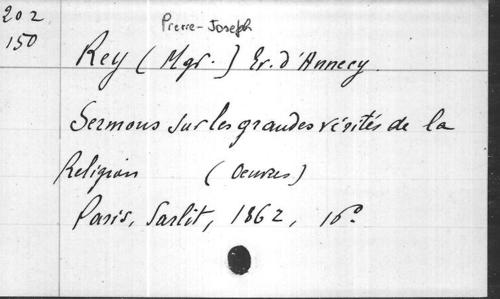 202
150
Pierre-Joseph
Rey (Mgr.) Ev. d'Annecy.
Sermons sur les grandes vérités de la
Religion (Oeuvres)
Paris, Sarlit, 1862, 16º